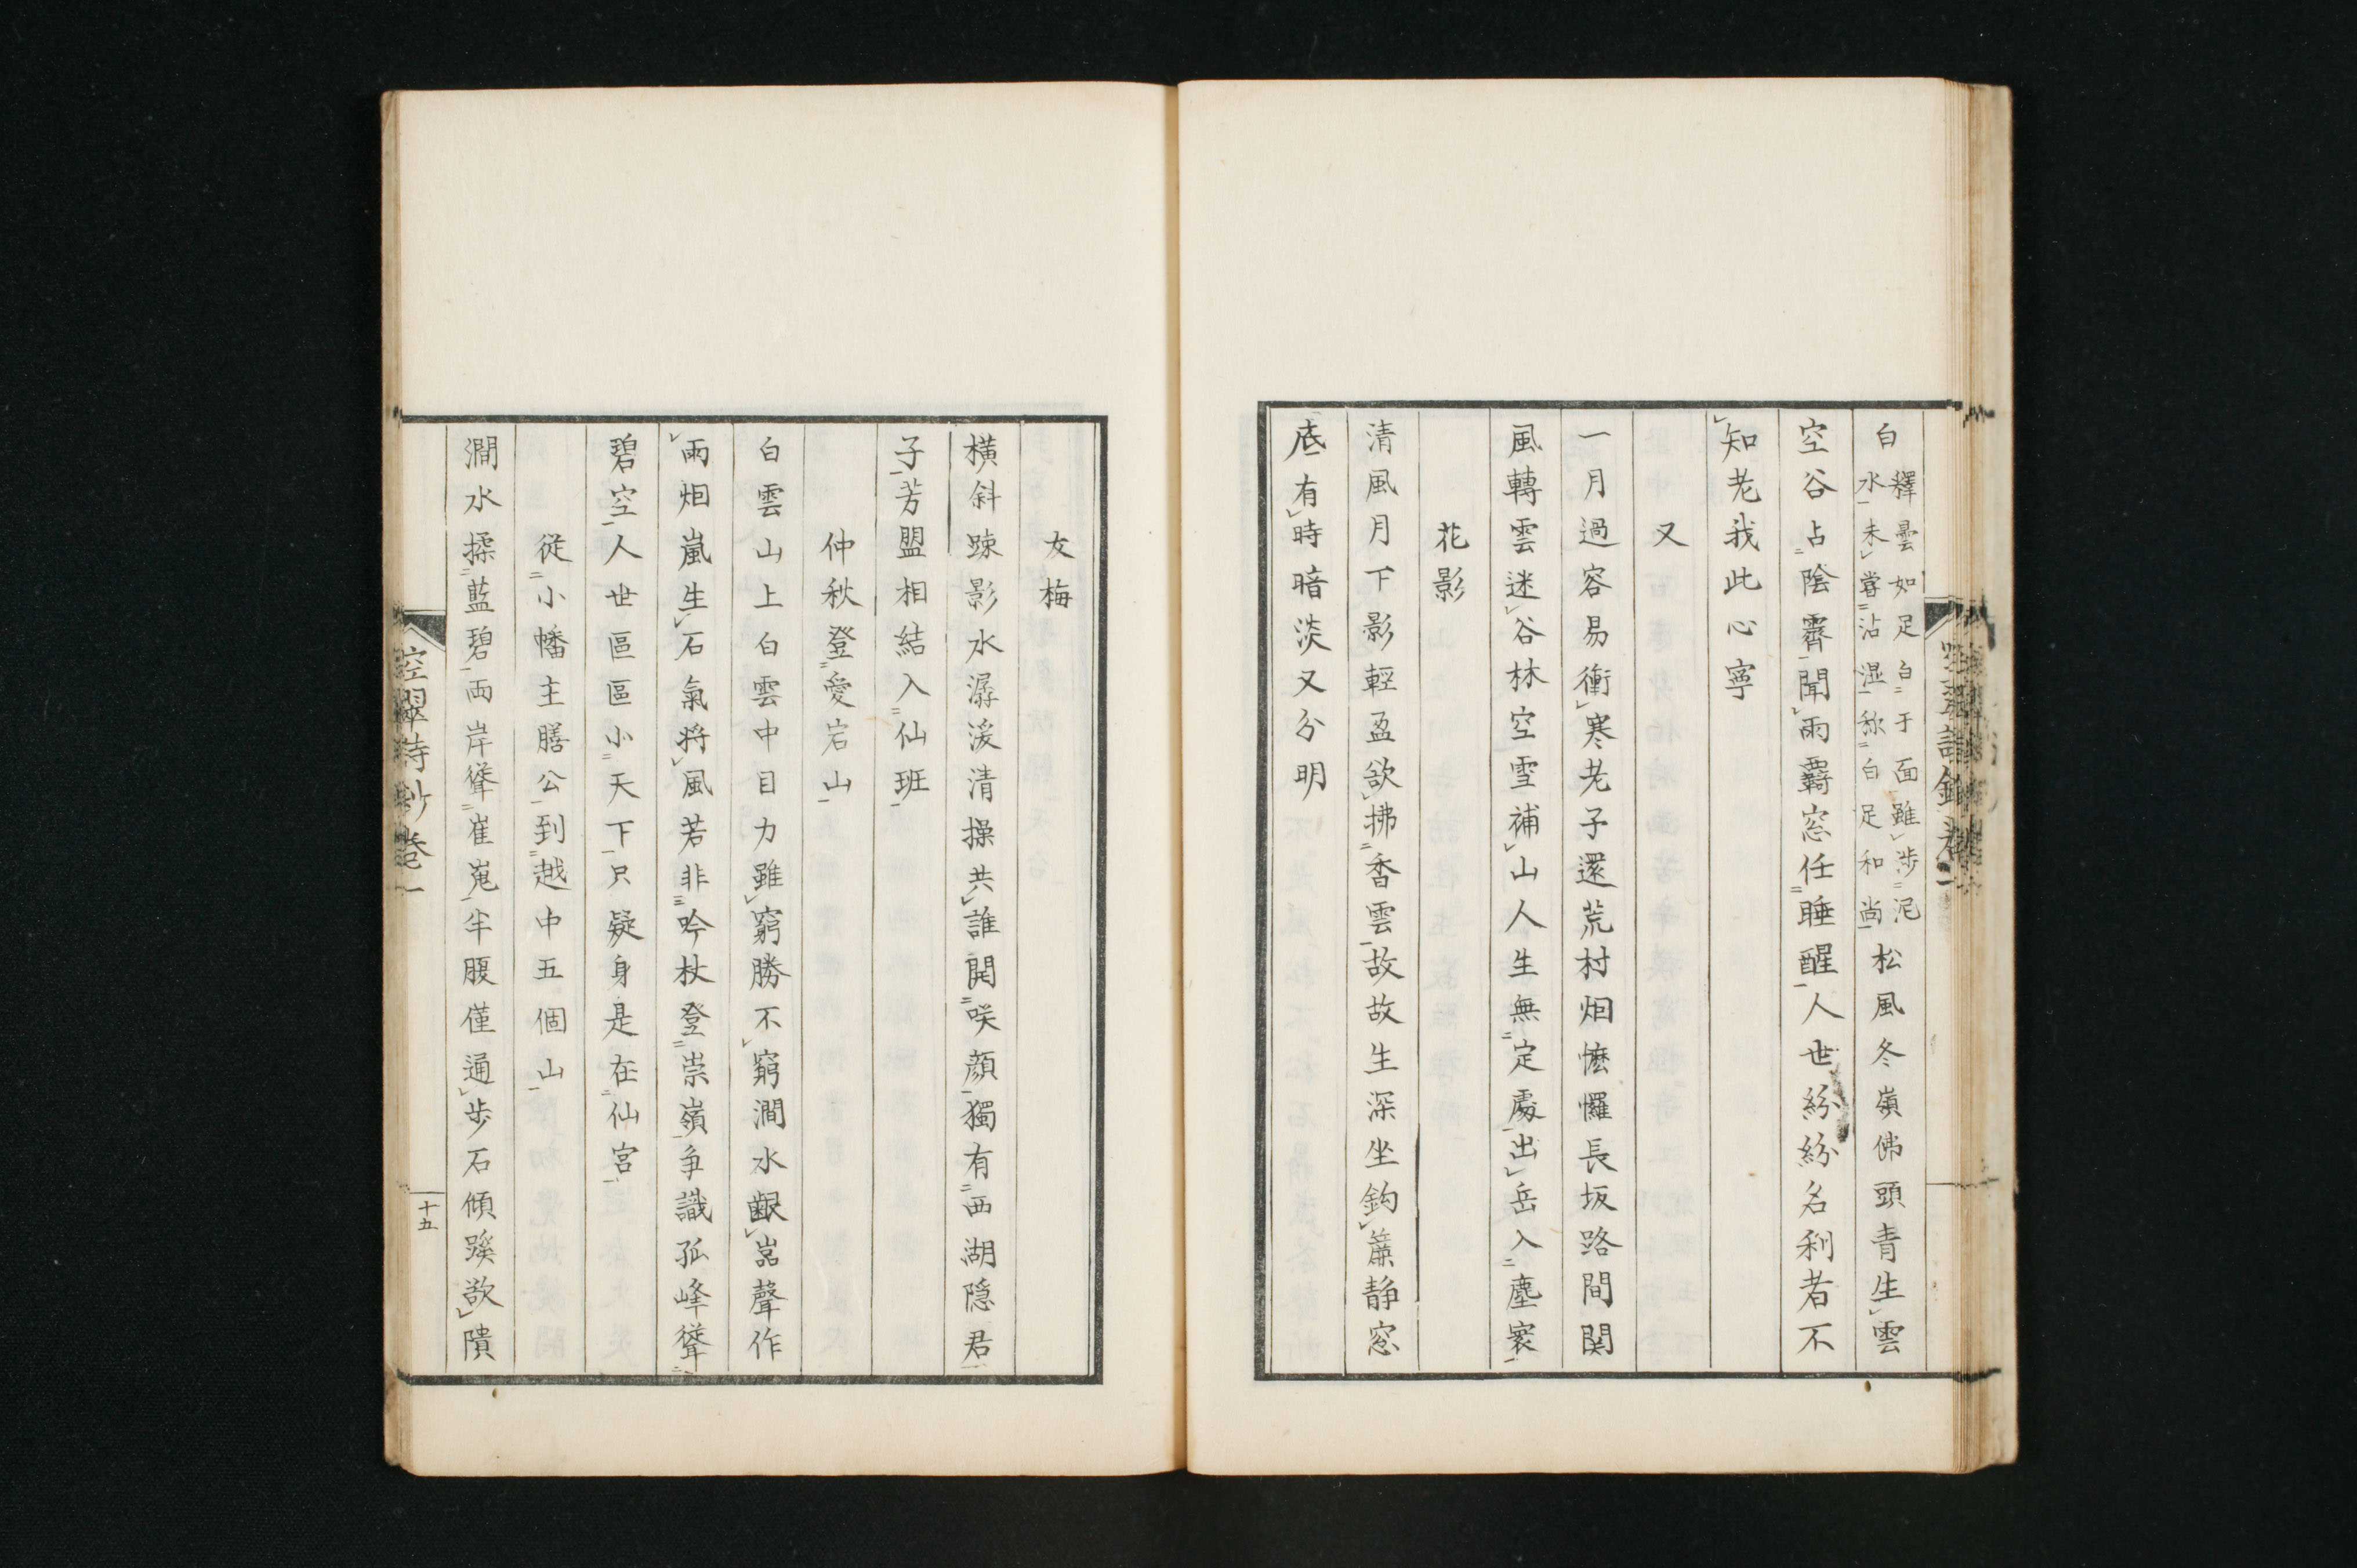 白釋曇如足白于面雖歩泥
水未嘗沾湿称白足和尚松風冬嶺佛頭青生雲
空谷占陰霽聞雨覇窓任睡醒人世紛紛名利者不
知老我此心寧
又
一月過容易衝寒老子還荒村烟幰㦬長坂路間関
風轉雲迷谷林空雪補山人生無定處出岳入塵寰
花影
清風月下影輕盈欲拂香雲故故生深坐鈎簾静窓
底有時暗淡又分明
友梅
横斜踈影水潺湲清操共誰開咲顔獨有西湖隠君
子芳盟相結入仙班
仲秋登愛宕山
白雲山上白雲中目力雖窮勝不窮澗水齦嵓聲作
雨烟嵐生石氣将風若非吟杖登崇嶺争識孤峰聳
碧空人世區區小天下只疑身是在仙宮
従小幡主膳公到越中五個山
澗水揉藍碧両岸聳崔嵬半腹僅通歩石傾蹊欲隤
空翠詩鈔巻一
十五